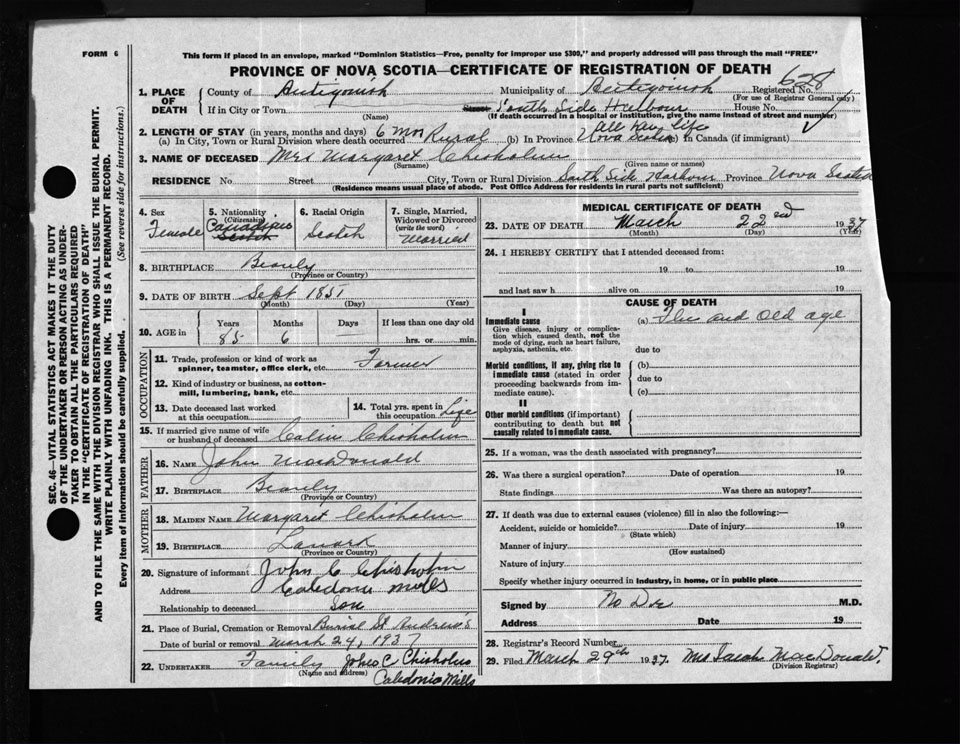 FORM 6
This form if placed in an envelope, marked "Dominion Statistics—Free, penalty for improper use $300," and properly addressed will pass through the mail "FREE"
PROVINCE OF NOVA SCOTIA—CERTIFICATE OF REGISTRATION OF DEATH
628
1. PLACE OF DEATH
County of Antigonish Municipality of Antigonish Registered No.
(For use of Registrar General only)
If in City or Town Street South Side Harbour House No.
(Name) (If death occurred in a hospital or institution, give the name instead of street and number)
2. LENGTH OF STAY (in years, months and days) All her life
(a) In City, Town or Rural Division where death occurred 6 mos Rural (b) In Province Nova Scotia (c) In Canada (if immigrant)
3. NAME OF DECEASED Mrs Margaret Chisholm
(Surname) (Given name or names)
RESIDENCE No. Street City, Town or Rural Division South Side Harbour Province Nova Scotia
(Residence means usual place of abode. Post Office Address for residents in rural parts not sufficient)
SEC. 46—VITAL STATISTICS ACT MAKES IT THE DUTY
OF THE UNDERTAKER OR PERSON ACTING AS UNDER-
TAKER TO OBTAIN ALL THE PARTICULARS REQUIRED
IN THE "CERTIFICATE OF REGISTRATION OF DEATH"
AND TO FILE THE SAME WITH THE DIVISION REGISTRAR WHO SHALL ISSUE THE BURIAL PERMIT.
WRITE PLAINLY WITH UNFADING INK. THIS IS A PERMANENT RECORD.
Every item of information should be carefully supplied. (See reverse side for instructions.)
4. Sex Female
5. Nationality (Citizenship) Canadian Scotch
6. Racial Origin Scotch
7. Single, Married, Widowed or Divorced (write the word) Married
8. BIRTHPLACE Beauly
(Province or Country)
9. DATE OF BIRTH Sept 1851
(Month) (Day) (Year)
10. AGE in Years Months Days If less than one day old
85 6 hrs. or min.
OCCUPATION
11. Trade, profession or kind of work as
spinner, teamster, office clerk, etc. Farmer
12. Kind of industry or business, as cotton-
mill, lumbering, bank, etc.
13. Date deceased last worked
at this occupation
14. Total yrs. spent in
this occupation Life
15. If married give name of wife
or husband of deceased Colin Chisholm
FATHER
16. NAME John MacDonald
17. BIRTHPLACE Beauly
(Province or Country)
MOTHER
18. MAIDEN NAME Margaret Chisholm
19. BIRTHPLACE Lanark
(Province or Country)
20. Signature of informant John C Chisholm
Address Caledonia Mills
Relationship to deceased Son
21. Place of Burial, Cremation or Removal Burial St Andrew's
Date of burial or removal March 24, 1937
22. UNDERTAKER Family John C Chisholm
(Name and address) Caledonia Mills
MEDICAL CERTIFICATE OF DEATH
23. DATE OF DEATH March 22nd 1937
(Month) (Day) (Year)
24. I HEREBY CERTIFY that I attended deceased from:
19 to 19
and last saw h alive on 19
CAUSE OF DEATH
I
Immediate cause (a) Flu and old age
Give disease, injury or complica-
tion which caused death, not the
mode of dying, such as heart failure,
asphyxia, asthenia, etc.
due to
Morbid conditions, if any, giving rise to
immediate cause (stated in order
proceeding backwards from im-
mediate cause).
(b)
due to
(c)
II
Other morbid conditions (if important)
contributing to death but not
causally related to immediate cause.
25. If a woman, was the death associated with pregnancy?
26. Was there a surgical operation? Date of operation 19
State findings Was there an autopsy?
27. If death was due to external causes (violence) fill in also the following:—
Accident, suicide or homicide? Date of injury 19
(State which)
Manner of injury
(How sustained)
Nature of injury
Specify whether injury occurred in industry, in home, or in public place
Signed by No Dr M.D.
Address Date 19
28. Registrar's Record Number
29. Filed March 29th 1937. Mrs Sarah MacDonald.
(Division Registrar)